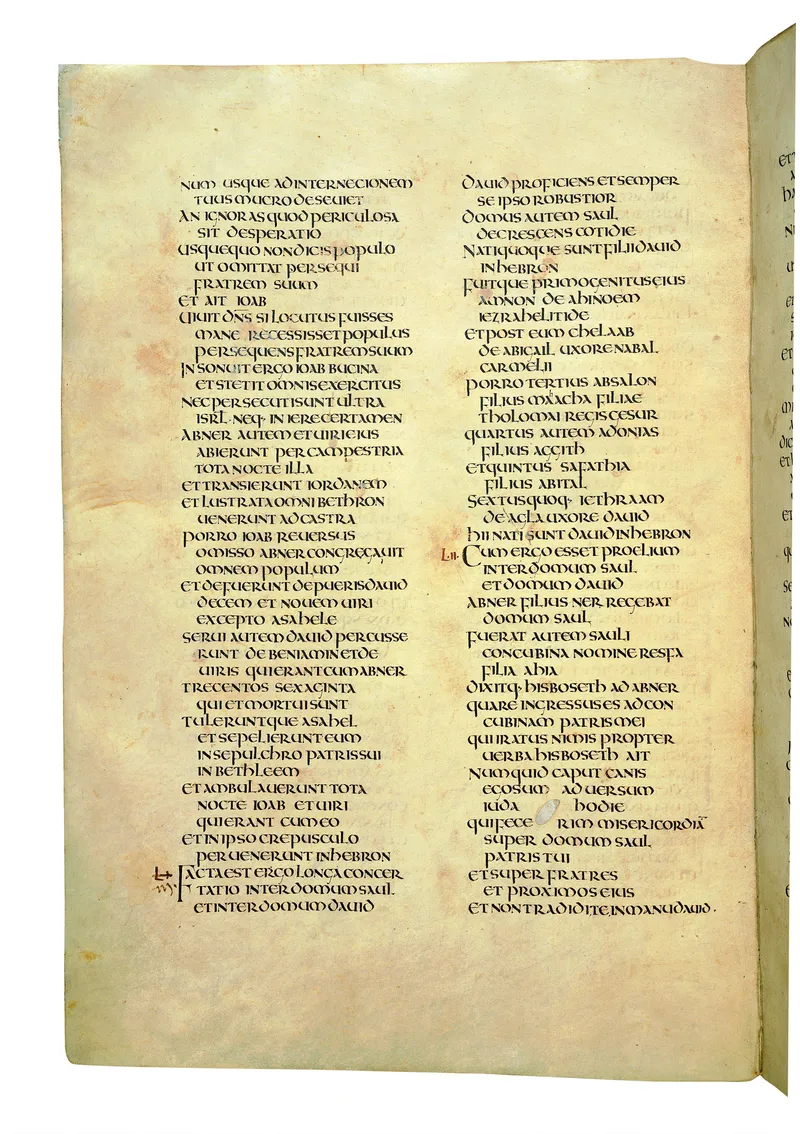 NUM USQUE AD INTERNECIONEM
TUUS MUCRO DESEUIET
AN IGNORAS QUOD PERICULOSA
SIT DESPERATIO
USQUEQUO NON DICIS POPULO
UT OMITTAT PERSEQUI
FRATREM SUUM
ET AIT IOAB
UIUIT DNS SI LOCUTUS FUISSES
MANE RECESSISSET POPULUS
PERSEQUENS FRATREM SUUM
INSONUIT ERGO IOAB BUCINA
ET STETIT OMNIS EXERCITUS
NEC PERSECUTI SUNT ULTRA
ISRL· NEQ· INIERE CERTAMEN
ABNER AUTEM ET UIRI EIUS
ABIERUNT PER CAMPESTRIA
TOTA NOCTE ILLA
ET TRANSIERUNT IORDANEM
ET LUSTRATA OMNI BETHRON
UENERUNT AD CASTRA
PORRO IOAB REUERSUS
OMISSO ABNER CONGREGAUIT
OMNEM POPULUM
ET DEFUERUNT DE PUERIS DAUID
DECEM ET NOUEM UIRI
EXCEPTO ASAHELE
SERUI AUTEM DAUID PERCUSSE
RUNT DE BENIAMIN ET DE
UIRIS QUI ERANT CUM ABNER
TRECENTOS SEXAGINTA
QUI ET MORTUI SUNT
TULERUNTQUE ASAHEL
ET SEPELIERUNT EUM
IN SEPULCHRO PATRIS SUI
IN BETHLEEM
ET AMBULAUERUNT TOTA
NOCTE IOAB ET UIRI
QUI ERANT CUM EO
ET IN IPSO CREPUSCULO
PERUENERUNT IN HEBRON
FACTA EST ERGO LONGA CONCER
TATIO INTER DOMUM SAUL
ET INTER DOMUM DAUID
DAUID PROFICIENS ET SEMPER
SE IPSO ROBUSTIOR
DOMUS AUTEM SAUL
DECRESCENS COTIDIE
NATI QUOQUE SUNT FILII DAUID
IN HEBRON
FUITQUE PRIMOGENITUS EIUS
AMNON DE AHINOEM
IEZRAHELITIDE
ET POST EUM CHELAAB
DE ABIGAIL UXORE NABAL
CARMELII
PORRO TERTIUS ABSALON
FILIUS MAACHA FILIAE
THOLOMAI REGIS GESUR
QUARTUS AUTEM ADONIAS
FILIUS AGGITH
ET QUINTUS SAFATHIA
FILIUS ABITAL
SEXTUS QUOQ· IETHRAAM
DE AGLA UXORE DAUID
HII NATI SUNT DAUID IN HEBRON
LII· CUM ERGO ESSET PROELIUM
INTER DOMUM SAUL
ET DOMUM DAUID
ABNER FILIUS NER REGEBAT
DOMUM SAUL
FUERAT AUTEM SAULI
CONCUBINA NOMINE RESFA
FILIA AHIA
DIXITQ· HISBOSETH AD ABNER
QUARE INGRESSUS ES AD CON
CUBINAM PATRIS MEI
QUI IRATUS NIMIS PROPTER
UERBA HISBOSETH AIT
NUMQUID CAPUT CANIS
EGO SUM ADUERSUM
IUDA HODIE
QUI FECE RIM MISERICORDIĀ
SUPER DOMUM SAUL
PATRIS TUI
ET SUPER FRATRES
ET PROXIMOS EIUS
ET NON TRADIDI TE IN MANU DAUID·